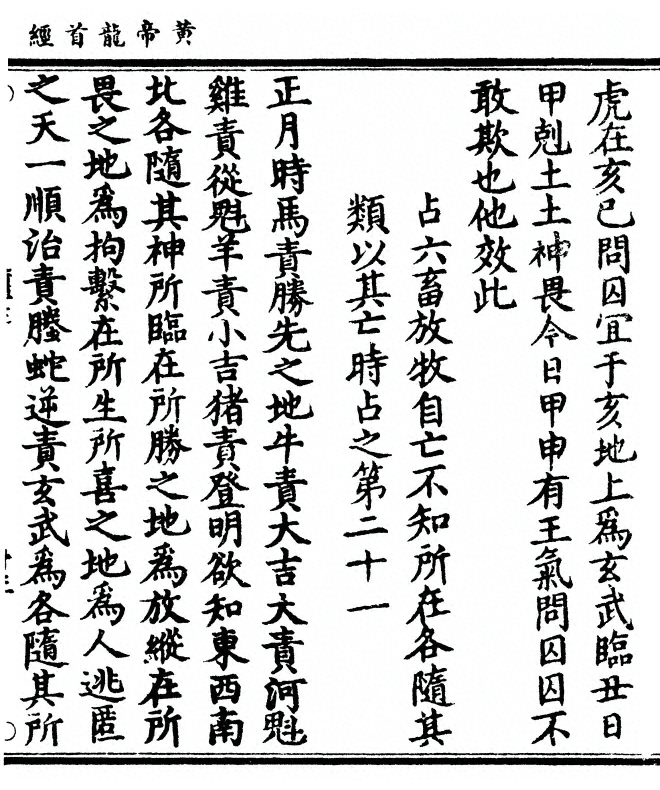 黄帝龍首經
虎在亥巳問囚冝于亥地上爲玄武臨丑日
甲剋土土神畏今日甲申有王氣問囚囚不
敢欺也他效此
占六畜放牧自亡不知所在各隨其
類以其亡時占之第二十一
正月時馬責勝先之地牛責大吉犬責河魁
雞責從魁羊責小吉猪責登明欲知東西南
北各隨其神所臨在所勝之地爲放縱在所
畏之地爲拘繫在所生所喜之地爲人逃匿
之天一順治責螣蛇逆責玄武爲各隨其所